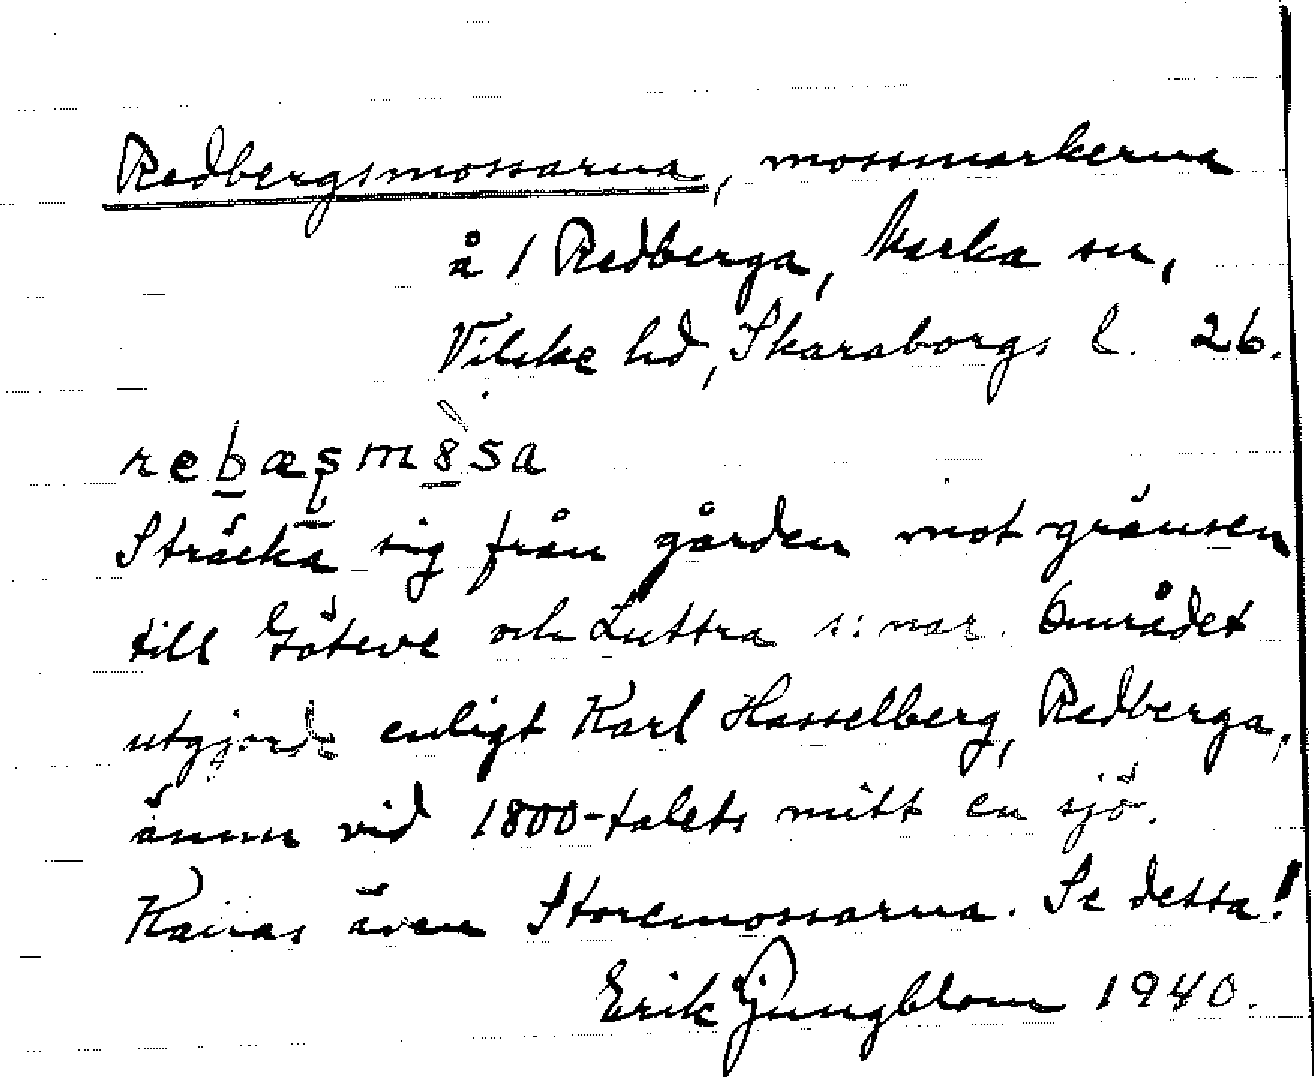 Redbergsmossarna, mossmarkerna
å 1 Redberga, Karka sn,
Vilske hd, Skaraborgs l. 26.
rebæsmsa
Sträcka sig från gården mot gränsen
till Göteve och Luttra s:nar. Området
utgjorde enligt Karl Hasselberg, Redberga,
ännu vid 1800-talets mitt en sjö.
Kallas även Storemossarna. Se detta!
Erik Ljungblom 1940.